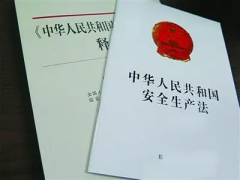 《中华人民共和国
释
中华人民共和国
安全生产法